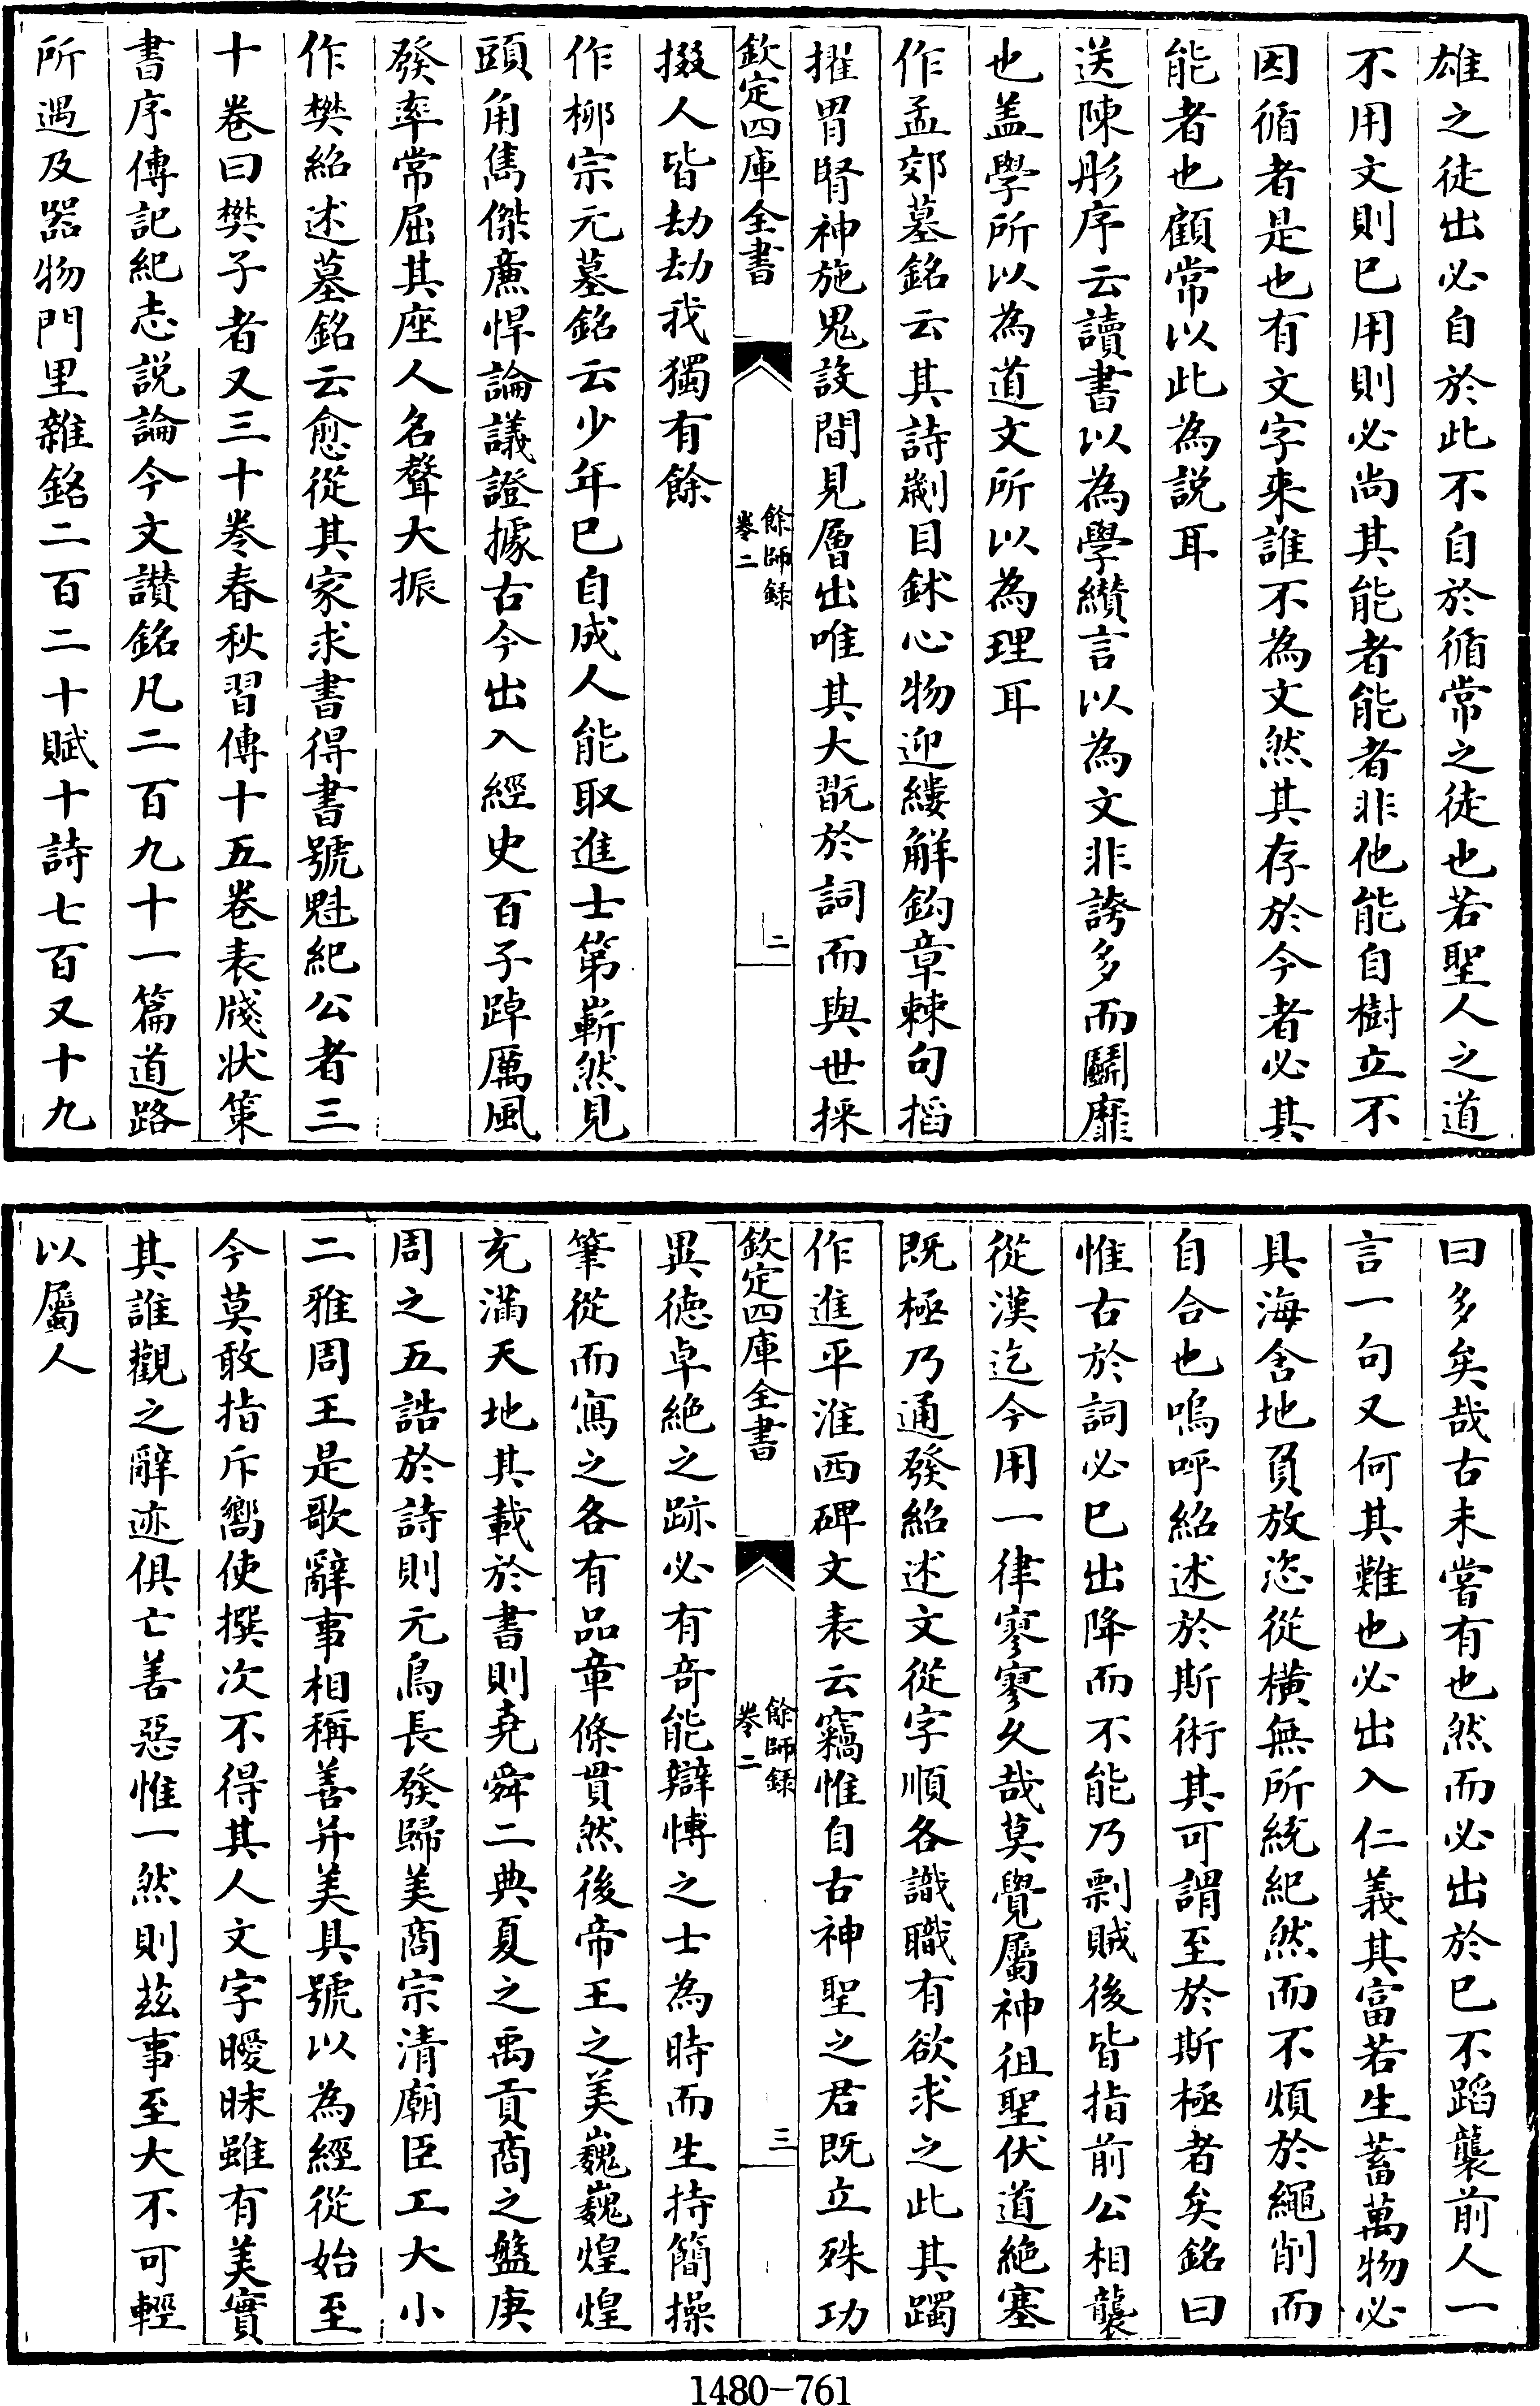 雄之徒出必自於此不自於循常之徒也若聖人之道
不用文則已用則必尚其能者能者非他能自樹立不
因循者是也有文字来誰不為文然其存於今者必其
能者也顧常以此為説耳
送陳彤序云讀書以為學纉言以為文非誇多而鬭靡
也盖學所以為道文所以為理耳
作孟郊墓銘云其詩劌目鉥心物迎縷解鈎章棘句搯
擢胃腎神施鬼設間見層出唯其大翫於詞而與世採
欽定四庫全書
餘師録
卷二
二
掇人皆劫劫我獨有餘
作栁宗元墓銘云少年已自成人能取進士第嶄然見
頭角雋傑廉悍論議證據古今出入經史百子踔厲風
發率常屈其座人名聲大振
作樊紹述墓銘云愈從其家求書得書號魁紀公者三
十卷曰樊子者又三十卷春秋習傳十五卷表牋状策
書序傳記紀志説論今文讃銘凡二百九十一篇道路
所遇及器物門里雜銘二百二十賦十詩七百又十九
曰多矣哉古未嘗有也然而必出於已不蹈襲前人一
言一句又何其難也必出入仁義其富若生蓄萬物必
具海含地負放恣從横無所統紀然而不煩於繩削而
自合也嗚呼紹述於斯術其可謂至於斯極者矣銘曰
惟古於詞必已出降而不能乃剽賊後皆指前公相襲
從漢迄今用一律寥寥久哉莫覺屬神徂聖伏道絶塞
既極乃通發紹述文從字順各識職有欲求之此其躅
作進平淮西碑文表云竊惟自古神聖之君既立殊功
欽定四庫全書
餘師録
卷二
三
異徳卓絶之跡必有竒能辯愽之士為時而生持簡操
筆從而寫之各有品章條貫然後帝王之美巍巍煌煌
充滿天地其載於書則堯舜二典夏之禹貢商之盤庚
周之五誥於詩則元鳥長發歸美商宗清廟臣工大小
二雅周王是歌辭事相稱善并美具號以為經從始至
今莫敢指斥嚮使撰次不得其人文字曖昧雖有美實
其誰觀之辭迹俱亡善惡惟一然則茲事至大不可輕
以屬人
1480-761